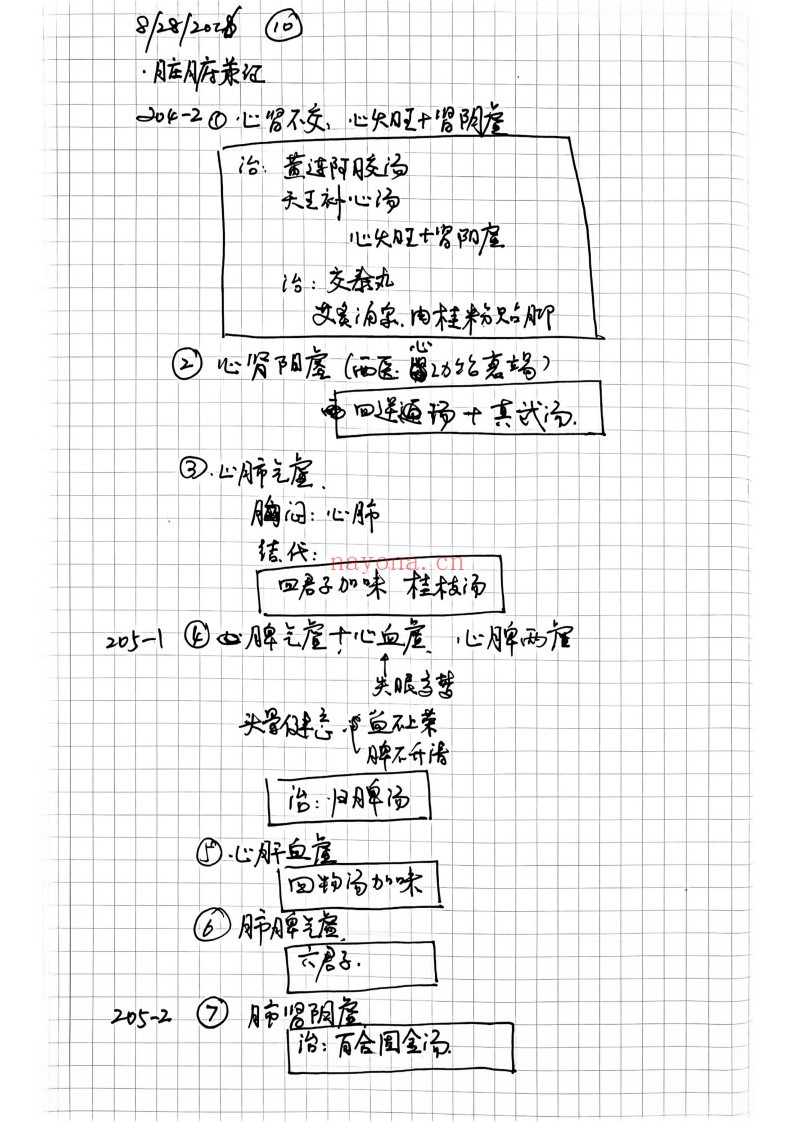 8/28/20 ⑩
·脏腑兼证
204-2 ① 心肾不交, 心火旺+肾阴虚
治: 黄连阿胶汤
天王补心汤
心火旺+肾阳虚
治: 交泰丸
艾炙涌泉. 肉桂粉贴脚
② 心肾阳虚 (西医: 心功能衰竭)
四逆汤 + 真武汤.
③. 心肺气虚.
胸闷: 心肺
结代:
nayona.cn
四君子加味 桂枝汤
205-1 ④ 脾气虚+心血虚. 心脾两虚
↑
失眠多梦
头晕健忘 血不上荣
脾不升清
治: 归脾汤
⑤. 心肝血虚
四物汤加味
⑥ 肺脾气虚.
六君子.
205-2 ⑦ 肺肾阴虚.
治: 百合固金汤.